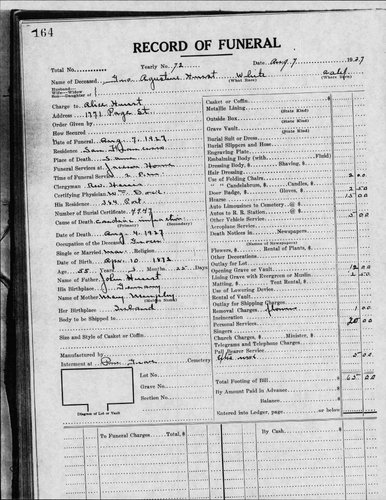 164
RECORD OF FUNERAL
Total No. Yearly No. 72 Date Aug. 7 1927
Name of Deceased Agustine Hurst White Calif
Husband— Wife— Widow— Son—Daughter of (What Race) (Where Born)
Charge to Alice Hurst
Address 1771 Page St
Order Given by
How Secured
Date of Funeral Aug. 7, 1927
Residence San Francisco
Place of Death
Funeral Services at
Time of Funeral Service 2 P.M.
Clergyman Rev.
Certifying Physician
His Residence
Number of Burial Certificate
Cause of Death
(Primary) (Secondary)
Date of Death Aug. 4, 1927
Occupation of the Deceased
Single or Married Mar Religion
Date of Birth Apr. 10. 1872
Age 55 Years 3 Months 25 Days
Name of Father John Hurst
His Birthplace Germany
Name of Mother Mary Murphy
(Maiden Name)
Her Birthplace Ireland
Body to be Shipped to
Size and Style of Casket or Coffin
Manufactured by
Interment at Cemetery
Lot No.
Grave No.
Section No.
Diagram of Lot or Vault
Casket or Coffin
Metallic Lining
(State Kind)
Outside Box
(State Kind)
Grave Vault
(State Kind)
Burial Suit or Dress
Burial Slippers and Hose
Engraving Plate
Embalming Body (with Fluid)
Dressing Body, $ Shaving, $
Hair Dressing
Use of Folding Chairs 3 00
" " Candelabrum, $ Candles, $
Door Badge, $ Gloves, $ 2 50
Hearse 15 00
Auto Limousines to Cemetery @ $
Autos to R. R. Station @ $
Other Vehicle Service 5 00
Death Notice in Newspapers
(Names of Newspapers)
Flowers, $ Rental of Plants, $
Other Decorations
Outlay for Lot
Opening Grave or Vault 12 00
Lining Grave with Evergreen or Muslin 2 50
Matting, $ Tent Rental, $
Use of Lowering Device
Rental of Vault
Outlay for Shipping Charges
Removal Charges flowers 1 00
Incineration
Personal Services 20 00
Singers
Church Charges, $ Minister, $
Telegrams and Telephone Charges, $
Pall Bearer Service 5 00
Total Footing of Bill $ 65 00
By Amount Paid in Advance
Balance
Entered into Ledger, page or below
To Funeral Charges Total, $ By Cash